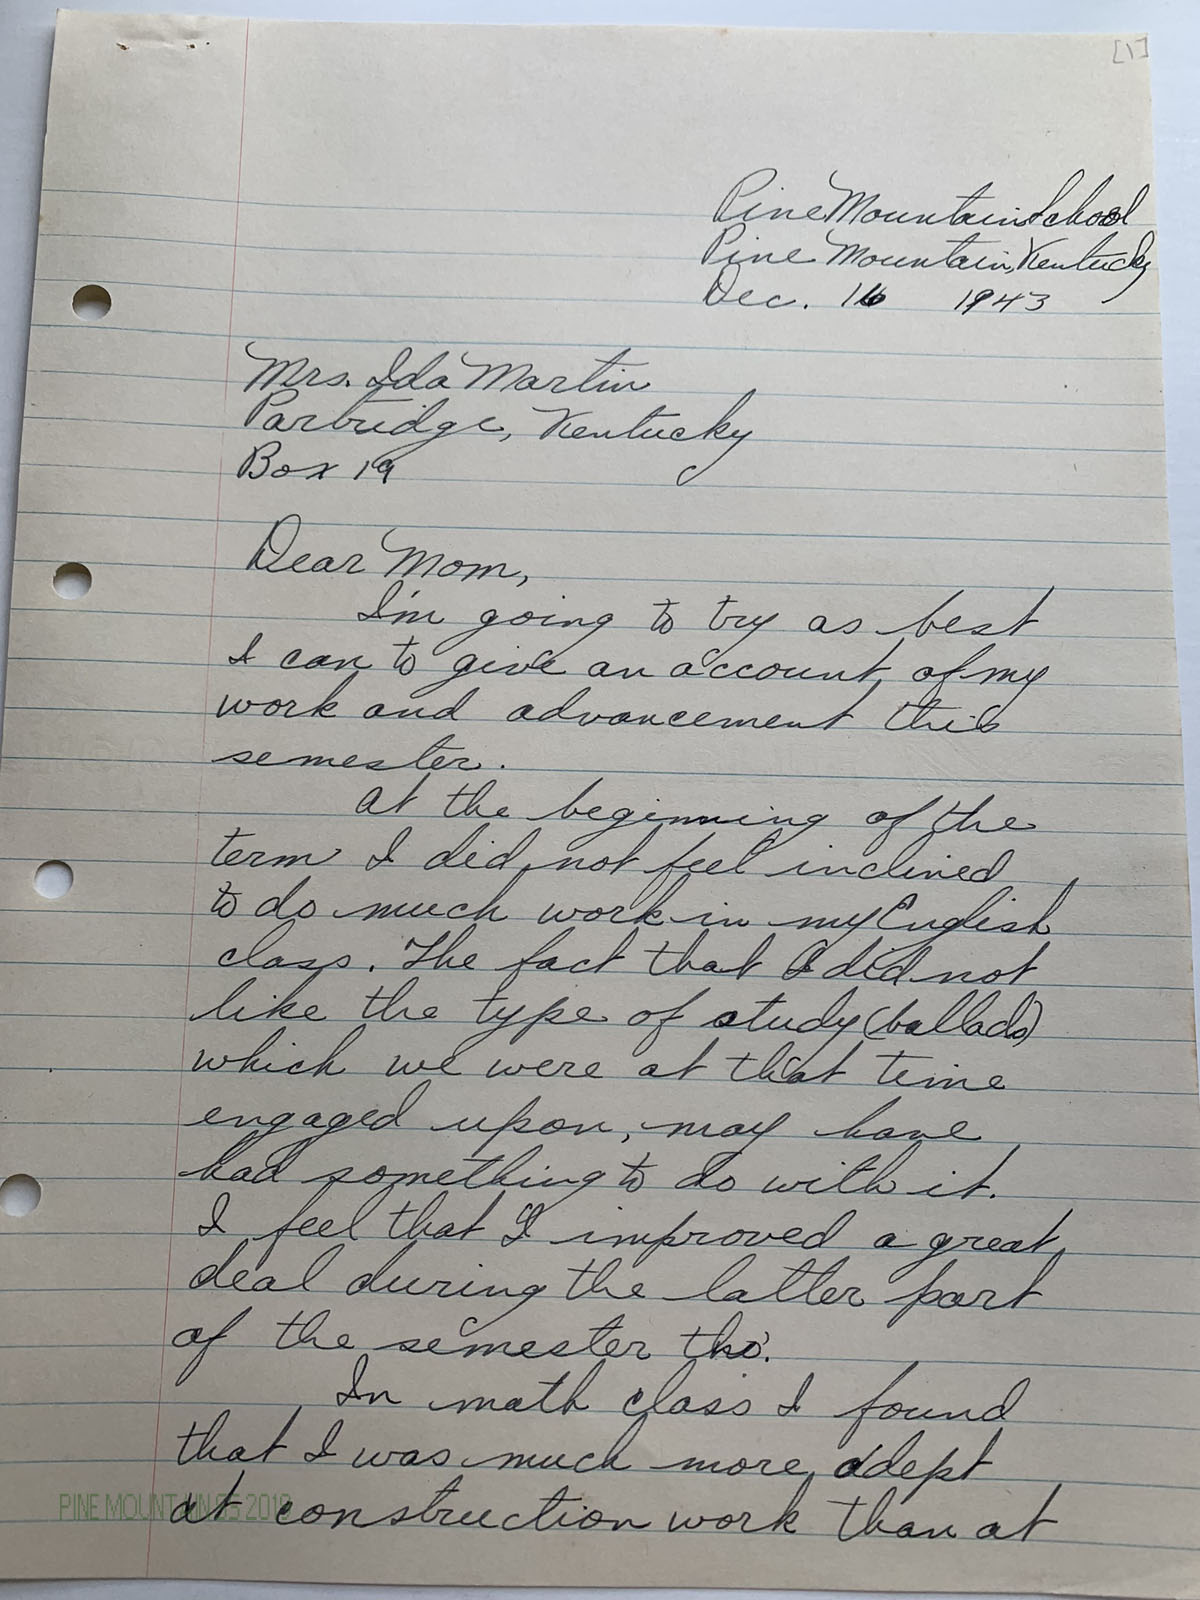 [1]
Pine Mountain School
Pine Mountain, Kentucky
Dec. 16 1943
Mrs. Ida Martin
Partridge, Kentucky
Box 19
Dear Mom,
I'm going to try as best
I can to give an account of my
work and advancement this
semester.
At the beginning of the
term I did not feel inclined
to do much work in my English
class. The fact that I did not
like the type of study (ballads)
which we were at that time
engaged upon, may have
had something to do with it.
I feel that I improved a great
deal during the latter part
of the semester tho'.
In math class I found
that I was much more adept
at construction work than at
PINE MOUNTAIN SS 2018